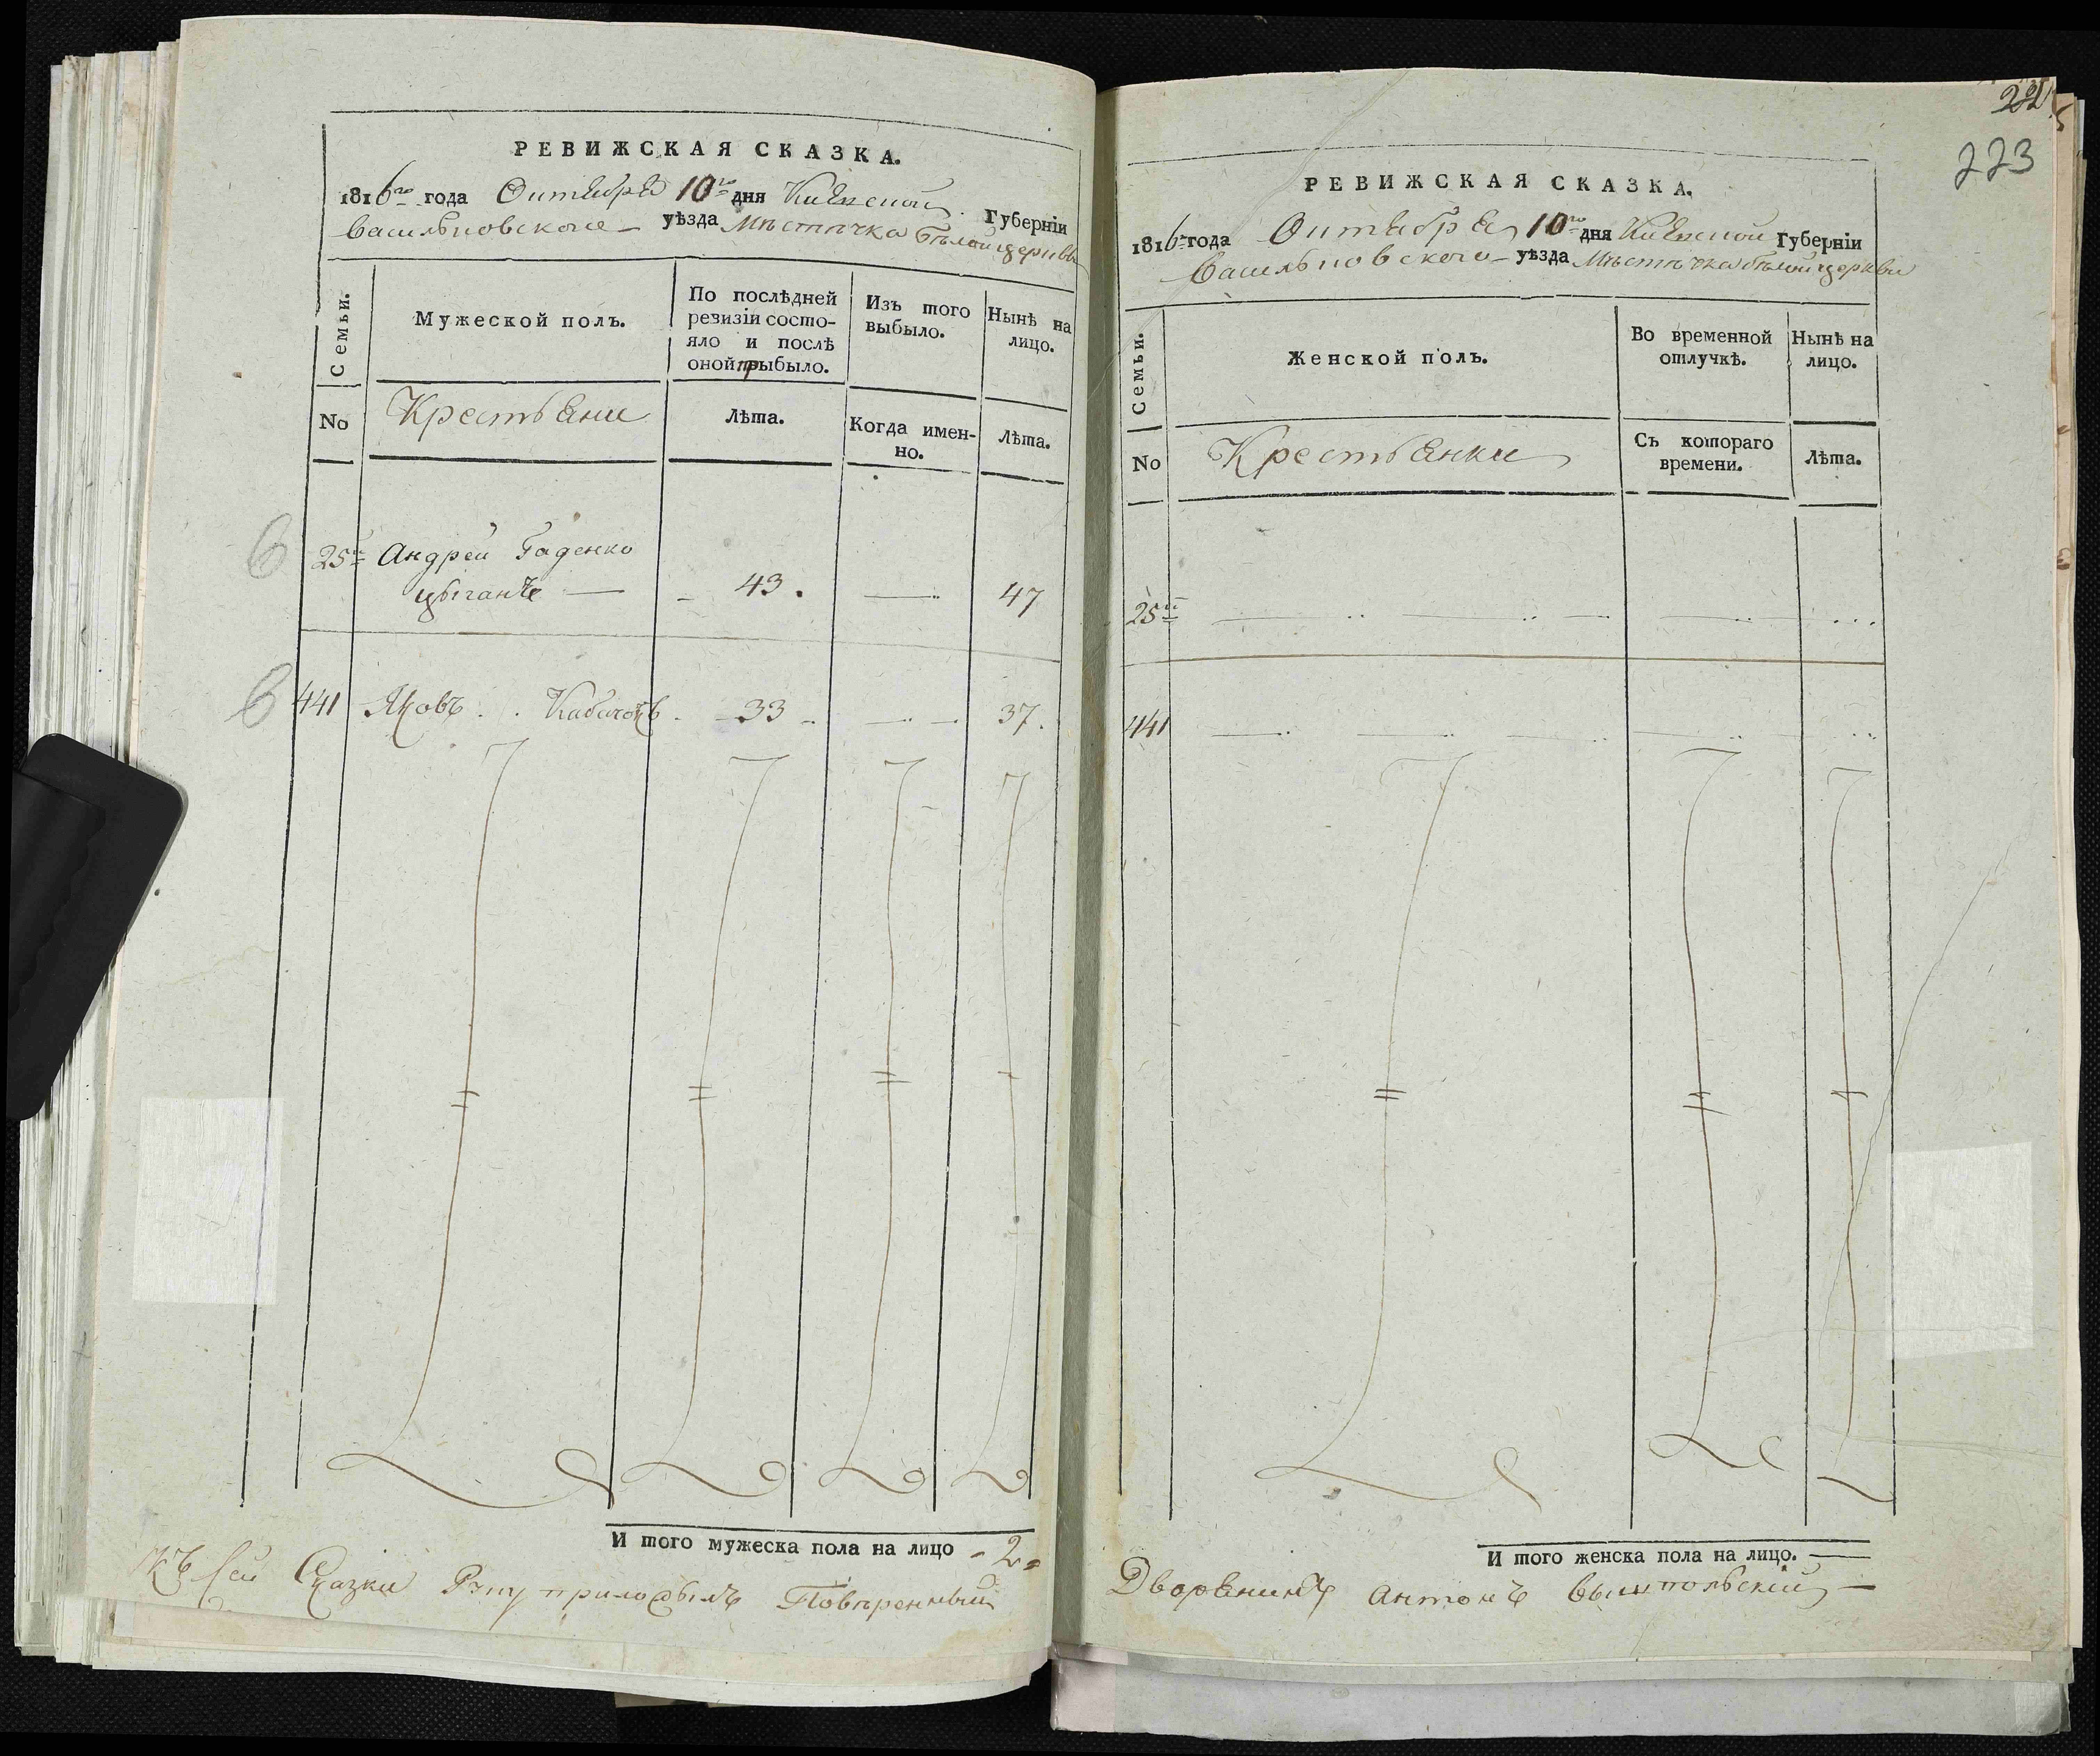 РЕВИЖСКАЯ СКАЗКА.
1816го года Октября 10го дня Киевской Губерніи
Васильковского уѣзда Мѣстечка Бѣлой церкви
Семьи.
Мужеской полъ.
По послѣдней ревизіи состояло и послѣ оной прыбыло.
Изъ того выбыло.
Нынѣ на лицо.
No
Крестьяни
Лѣта.
Когда именно.
Лѣта.
6
25й Андрей Гаденко
цыганъ — 43. — 47
6
441 Яковъ 33 — 37.
И того мужеска пола на лицо - 2 =
Къ сей Сказки Руку приложылъ Повѣренный
223
РЕВИЖСКАЯ СКАЗКА.
1816го года Октября 10го дня Киевской Губерніи
Васильковского уѣзда Мѣстечка Бѣлой церкви
Семьи.
Женской полъ.
Во временной отлучкѣ.
Нынѣ на лицо.
No
Крестьянки
Съ котораго времени.
Лѣта.
25й
441
И того женска пола на лицо. —
Дворянинъ Антонъ Вышпольскій —